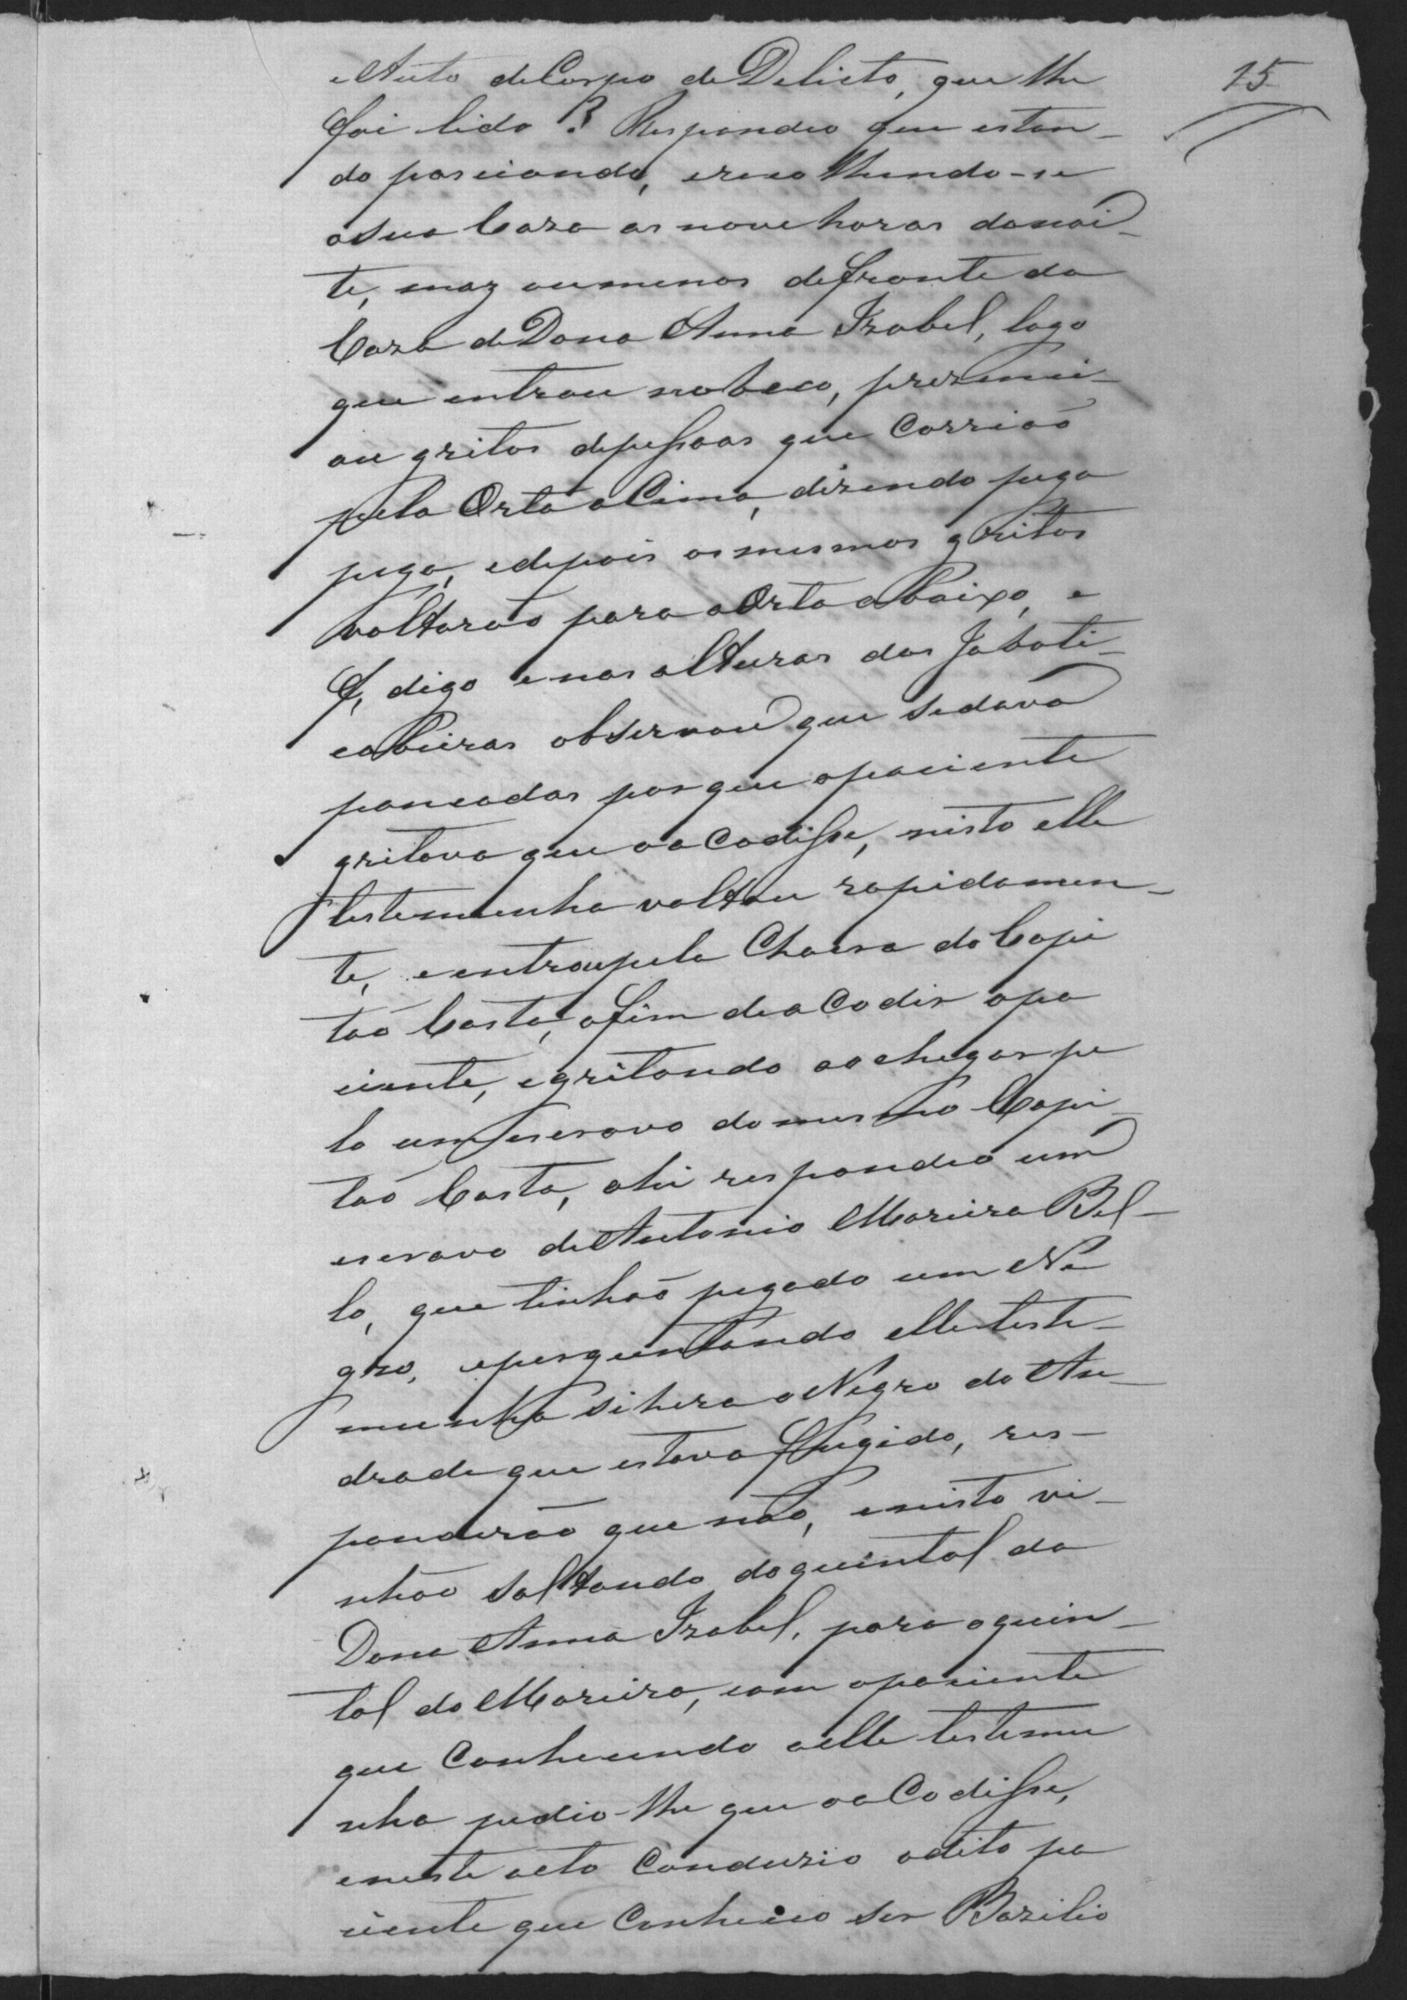 15
e Auto de Corpo de Delicto, que lhe
foi lido? Respondeo que estan-
do passiando, erecolhendo-se
asua Caza as nove horas danoi-
te, maz oumenos defronte da
Caza de Dona Anna Izabel, logo
que entrou nobeco, prezenci-
ou gritos depessoas que corrião
pela Orta aCima, dizendo pega
pega, edepois osmesmos gritos
voltarão para aOrta abaixo, e
f, digo enas alturas das Jaboti-
cabeiras observou que sedava
pancadas por que opaciente
gritava que oaCodisse, nisto elle
testemunha voltou rapidamen-
te, eentrou pela Chacra do Capi
tão Costa, afim deaCodir opa
ciente, egritando aochegar pe
lo um escravo domesmo Capi-
tão Costa, ahi respondeo um
escravo de Antonio Moreira Bel-
lo, que tinhão pegado um Ne
gro, eperguntando elle teste-
munha sihera oNegro do An-
drade que estava fugido, res-
ponderão que não, enisto vi-
nhão saltando doquintal da
Dona Anna Izabel, para oquin-
tal do Moreira, com opaciente
que Conhecendo aelle testemu
nha pedio-lhe que oaCodisse,
eneste acto Conduzio odito pa
ciente que Conheceo ser Bazilio